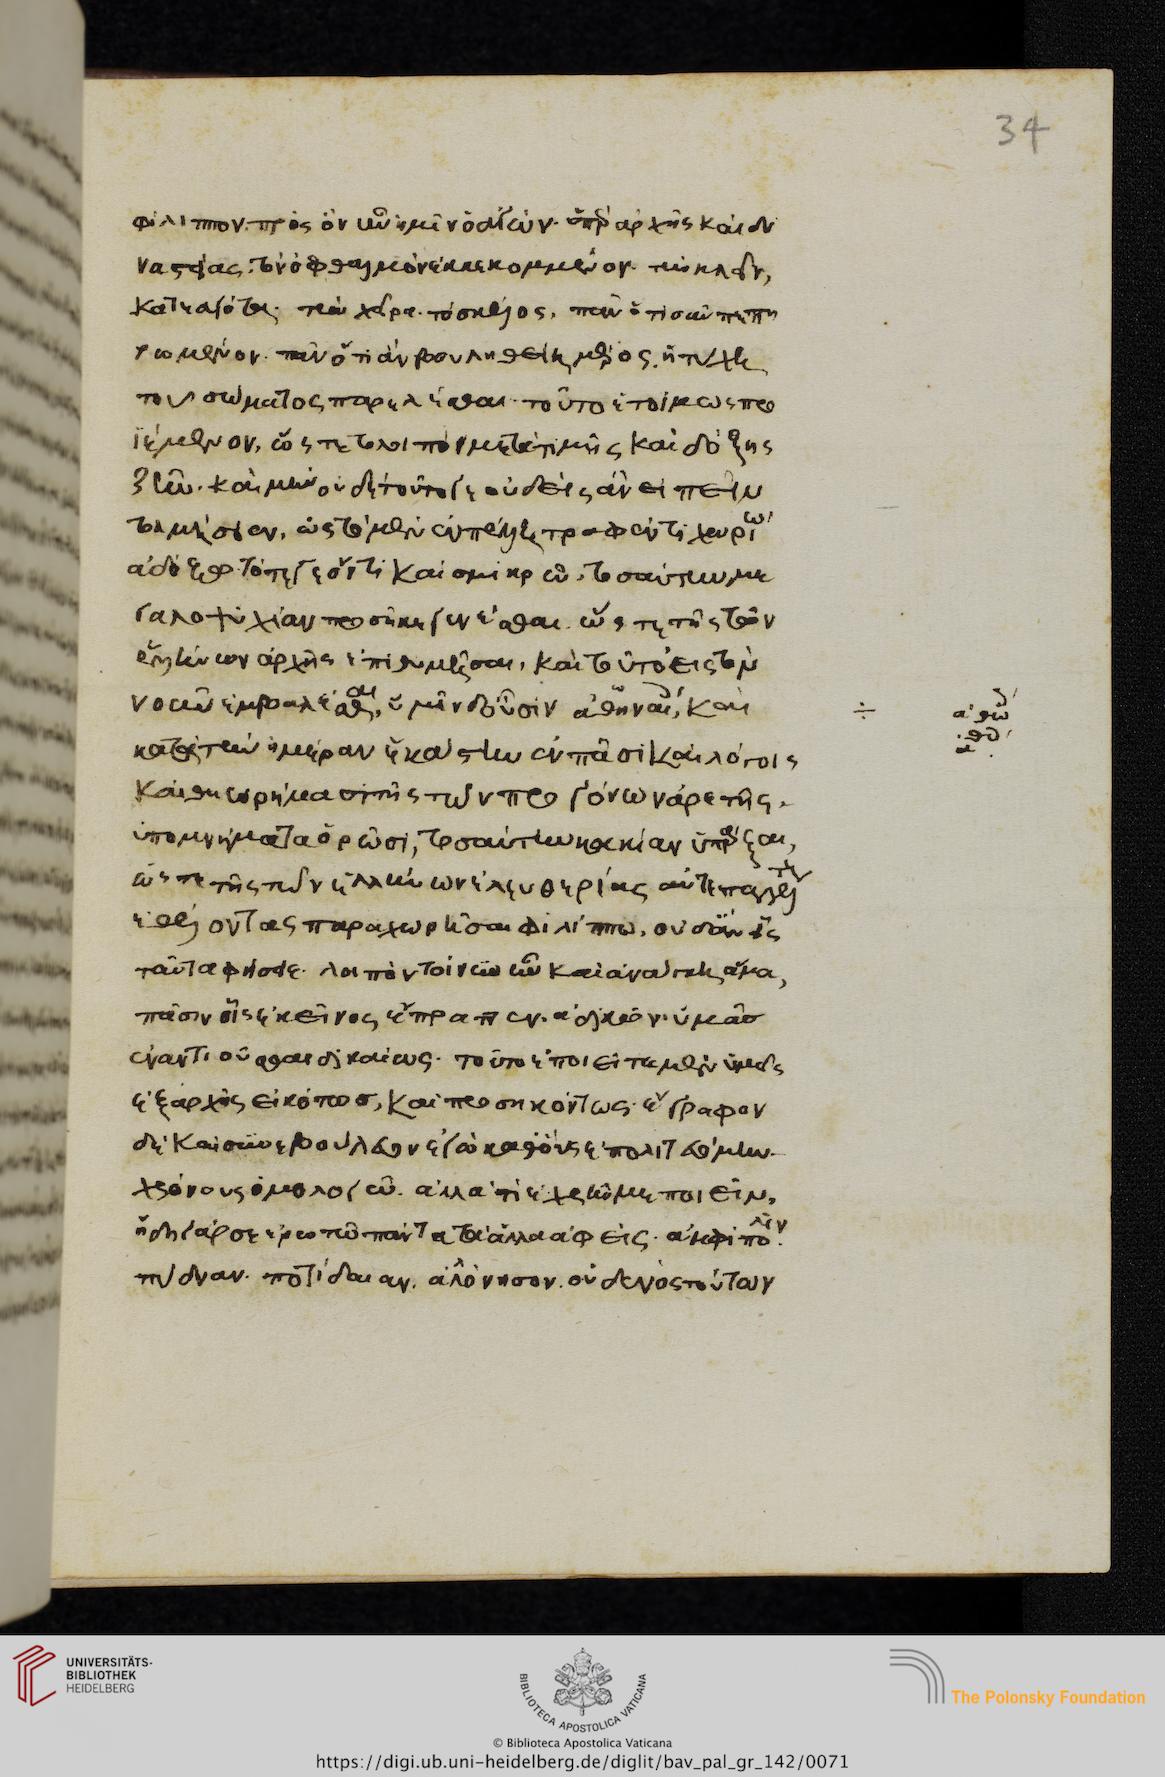 34
φίλιππον. πρὸς ὃν ἦν ἡμῖν ὁ ἀγών. ὑπὲρ ἀρχῆς καὶ δυ
ναστείας. τὸν ὀφθαλμὸν ἐκκεκομμένον. τὴν κλεῖν,
κατεαγότα. τὴν χεῖρα. τὸ σκέλος, πεπη
ρωμένον. πᾶν ὅτι ἂν βουληθείη μέρος ἡ τύχη
τοῦ σώματος παρελέσθαι. τοῦτο ἑτοίμως προ
ϊέμενον, ὥστε τὸ λοιπὸν μετὰ τιμῆς καὶ δόξης
ζῆν. καὶ μὴν οὐδὲ τοῦτό γε οὐδεὶς ἂν εἰπεῖν
τολμήσειεν, ὡς τῷ μὲν ἐν πέλλῃ τραφέντι χωρίῳ
ἀδόξῳ τότε γε ὄντι καὶ μικρῷ, τοσαύτην με
γαλοψυχίαν προσῆκε γενέσθαι. ὥστε τῆς τῶν
ἑλλήνων ἀρχῆς ἐπιθυμῆσαι, καὶ τοῦτο εἰς τὸν
νοῦν ἐμβαλέσθαι, ὑμῖν δ' οὖσιν ἀθηναίοις, καὶ
κατὰ τὴν ἡμέραν ἑκάστην ἐν πᾶσι καὶ λόγοις
καὶ θεωρήμασι τῆς τῶν προγόνων ἀρετῆς.
ὑπομνήματα ὁρῶσι, τοσαύτην κακίαν ὑπάρξαι,
ὥστε τῆς τῶν ἑλλήνων ἐλευθερίας αὐτεπαγγέλτους
ἐθελοντὰς παραχωρῆσαι φιλίππῳ. οὐδ' ἂν εἷς
ταῦτα φήσειε. λοιπὸν τοίνυν ἦν καὶ ἀναγκαῖον ἅμα,
πᾶσιν οἷς ἐκεῖνος ἔπραττεν. ἀδικῶν ὑμᾶς
ἐναντιοῦσθαι δικαίως. τοῦτο ἐποιεῖτε μὲν ὑμεῖς
ἐξ ἀρχῆς εἰκότως, καὶ προσηκόντως. ἔγραφον
δὲ καὶ συνεβούλευον ἐγὼ καθ' οὓς ἐπολιτευόμην
χρόνους ὁμολογῶ. ἀλλὰ τί ἐχρῆν με ποιεῖν,
ἤδη γάρ σε ἐρωτῶ πάντα τὰ ἄλλα ἀφείς. ἀμφίπολιν.
πύδναν. ποτίδαιαν. ἁλόννησον. οὐδενὸς τούτων
UNIVERSITÄTS-
BIBLIOTHEK
HEIDELBERG
BIBLIOTECA APOSTOLICA VATICANA
The Polonsky Foundation
© Biblioteca Apostolica Vaticana
https://digi.ub.uni-heidelberg.de/diglit/bav_pal_gr_142/0071